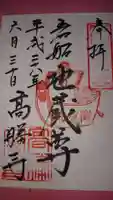 奉拝
岩船地蔵尊
平成二八年
六月三十日
高勝寺